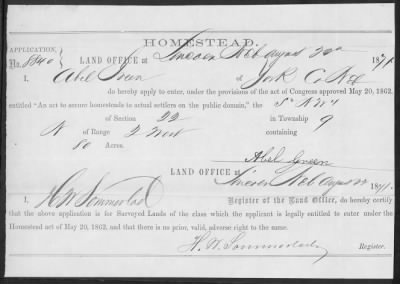 HOMESTEAD.
APPLICATION, LAND OFFICE at Lincoln Neb August 22nd 1871
No. 5840
I, Abel Green of York Co Neb
do hereby apply to enter, under the provisions of the act of Congress approved May 20, 1862,
entitled "An act to secure homesteads to actual settlers on the public domain," the S½ NW¼
of Section 22 in Township 9
N of Range 2 West containing
80 Acres.
Abel Green
LAND OFFICE at Lincoln Neb August 22 1871.
I, H W Sommerlad Register of the Land Office, do hereby certify
that the above application is for Surveyed Lands of the class which the applicant is legally entitled to enter under the
Homestead act of May 20, 1862, and that there is no prior, valid, adverse right to the same.
H. W. Sommerlad Register.